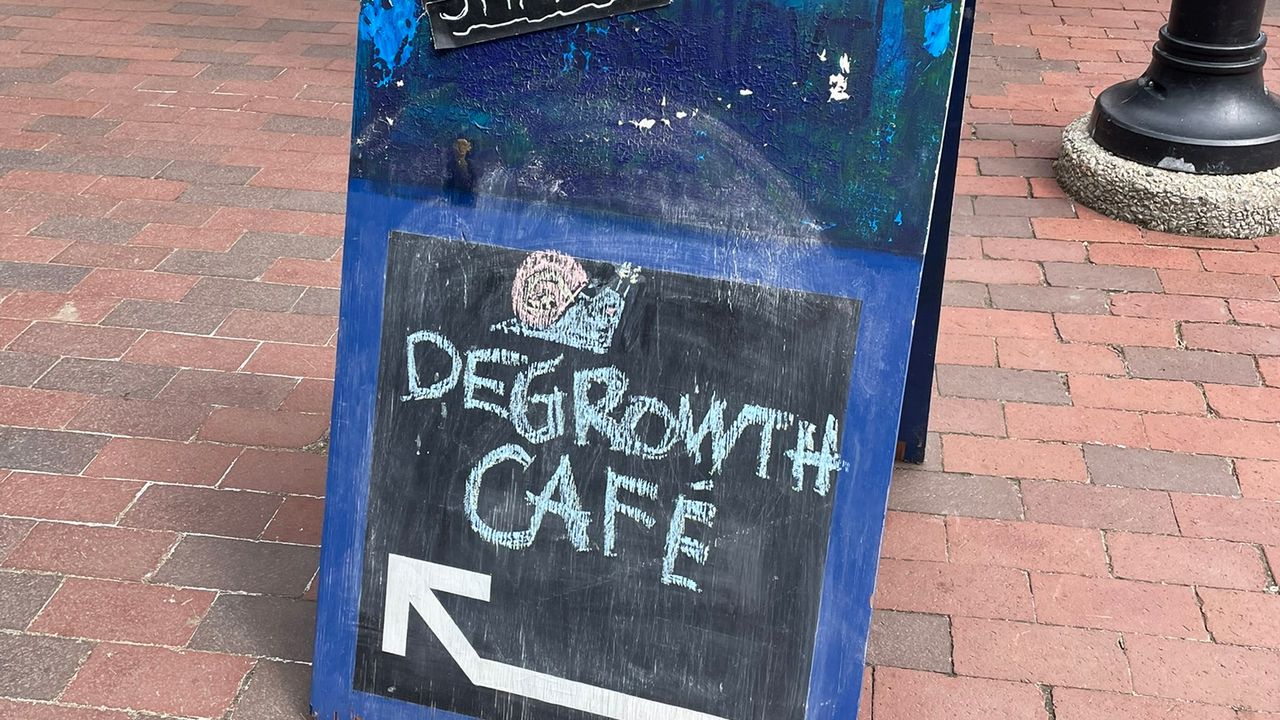 DEGROWTH
CAFÉ